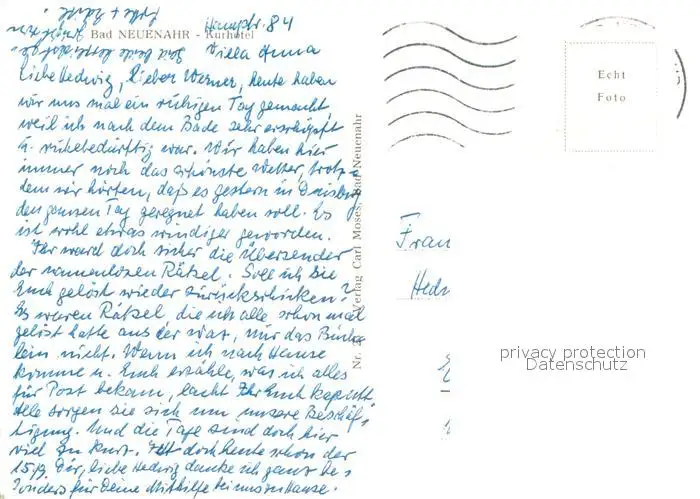 Hauptstr. 84
Bad NEUENAHR - Kurhotel
Villa Anna
Liebe Hedwig, lieber Werner, heute haben
wir uns mal ein ruhigen Tag gemacht
weil ich nach dem Bade sehr erschöpft
u. ruhebedürftig war. Wir haben hier
immer noch das schönste Wetter, trotz-
dem wir hörten, daß es gestern in Duisburg
den ganzen Tag geregnet haben soll. Es
ist wohl etwas windiger geworden.
Ihr ward doch sicher die Übersender
der namenlosen Rätsel. Soll ich sie
Euch gelöst wieder zurückschicken?
Es waren Rätsel, die ich alle schon mal
gelöst hatte aus der war, nur das Büch-
lein nicht. Wenn ich nach Hause
komme u. Euch erzähle, was ich alles
für Post bekam, lacht Ihr Euch kaputt
Alle sorgen sie sich um unsere Beschäf-
tigung. Und die Tage sind doch hier
viel zu kurz. Ist doch heute schon der
15/9. Dir, liebe Hedwig danke ich ganz be-
sonders für Deine Mithilfe bei uns zu Hause.
Nr. Verlag Carl Moses, Bad Neuenahr
Echt
Foto
Hedw
privacy protection
Datenschutz